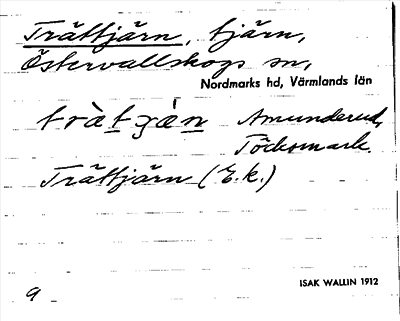 Trättjärn, tjärn,
Östervallskogs sn,
Nordmarks hd, Värmlands län
Amunderud,
Töcksmark.
Trättjärn (E.k.)
ISAK WALLIN 1912
9